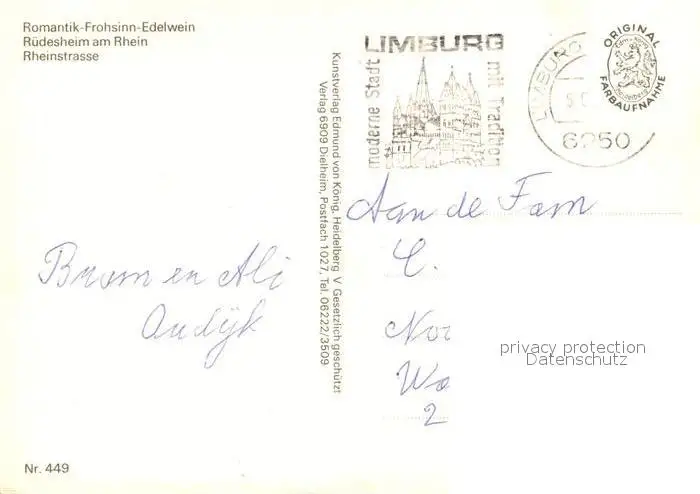 Romantik-Frohsinn-Edelwein
Rüdesheim am Rhein
Rheinstrasse
LIMBURG
moderne Stadt
mit Tradition
LIMBURG
6250
ORIGINAL
FARBAUFNAHME
Kunstverlag Edmund von König, Heidelberg V Gesetzlich geschützt
Verlag 6909 Dielheim, Postfach 1027, Tel. 06222/3509
Aan de Fam
Bram en Ali
Andijk
Noo
Wa
2
privacy protection
Datenschutz
Nr. 449